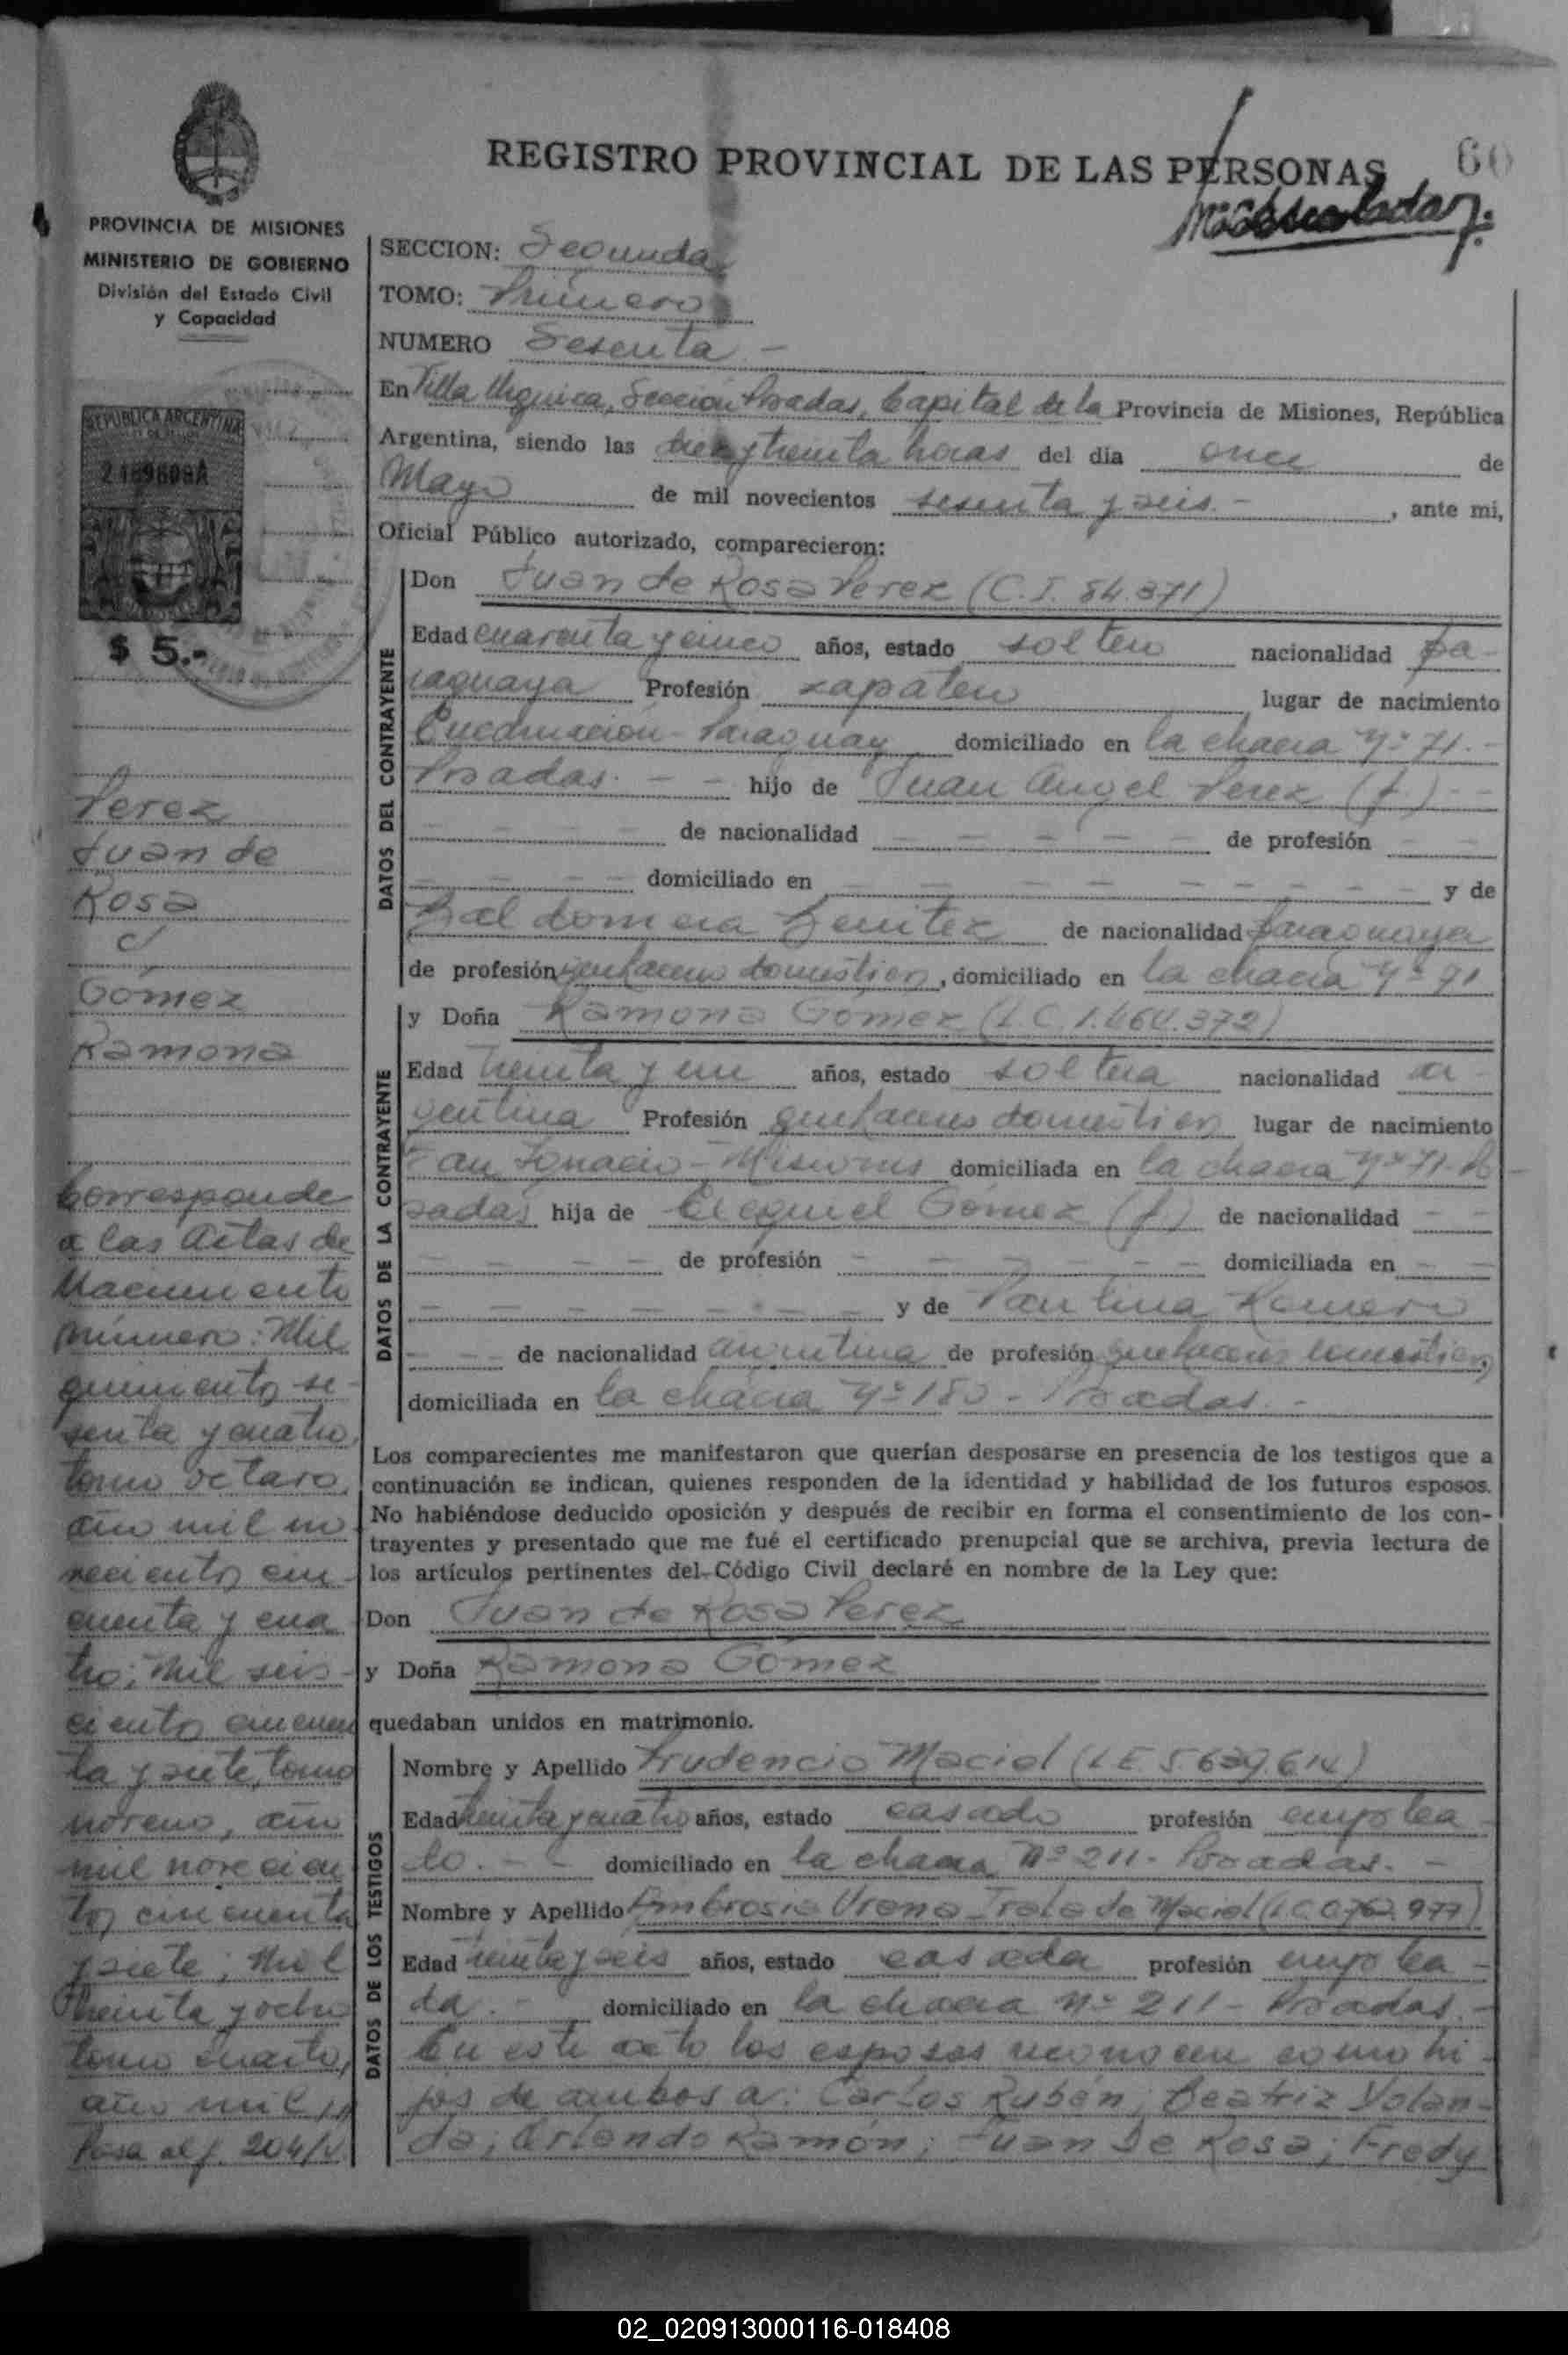 REGISTRO PROVINCIAL DE LAS PERSONAS
60
PROVINCIA DE MISIONES
MINISTERIO DE GOBIERNO
División del Estado Civil
y Capacidad
REPUBLICA ARGENTINA
$ 5.-
Perez
Juan de
Rosa
c/
Gómez
Ramona
Corresponde
a las Actas de
Nacimiento
número: Mil
quinientos se-
senta y cuatro,
tomo octavo,
año mil no-
vecientos cin-
cuenta y cua-
tro; Mil seis-
cientos cincuen
ta y siete, tomo
noveno, año
mil novecien
tos cincuenta
y siete; Mil
treinta y ocho
tomo cuarto,
año mil
Pasa al f. 204/v
SECCION: Segunda
TOMO: Primero
NUMERO Sesenta -
En Villa Urquiza, Sección Posadas, Capital de la Provincia de Misiones, República
Argentina, siendo las y treinta horas del día once de
Mayo de mil novecientos sesenta y seis.- , ante mi,
Oficial Público autorizado, comparecieron:
DATOS DEL CONTRAYENTE
Don Juan de Rosa Perez (C.I. 84.371)
Edad cuarenta y cinco años, estado soltero nacionalidad pa-
raguaya Profesión zapatero lugar de nacimiento
Encarnación - Paraguay domiciliado en la chacra Nº 71.-
Posadas. - - hijo de Juan Angel Perez (f.) - -
- - - - de nacionalidad - - - - - de profesión - -
- - - - domiciliado en - - - - - - - - y de
Baldomera Benitez de nacionalidad paraguaya
de profesión quehaceres domésticos, domiciliado en la chacra Nº 71
DATOS DE LA CONTRAYENTE
y Doña Ramona Gómez (L.C. 1.464.372)
Edad treinta y un años, estado soltera nacionalidad ar-
gentina Profesión quehaceres domésticos lugar de nacimiento
San Ignacio - Misiones domiciliada en la chacra Nº 71- Po-
sadas hija de Ecequiel Gómez (f) de nacionalidad - -
- - - - de profesión - - - - - domiciliada en - -
- - - - - - - - y de Paulina Romero
- - - de nacionalidad argentina de profesión quehaceres domésticos,
domiciliada en la chacra Nº 180 - Posadas. -
Los comparecientes me manifestaron que querían desposarse en presencia de los testigos que a
continuación se indican, quienes responden de la identidad y habilidad de los futuros esposos.
No habiéndose deducido oposición y después de recibir en forma el consentimiento de los con-
trayentes y presentado que me fué el certificado prenupcial que se archiva, previa lectura de
los artículos pertinentes del Código Civil declaré en nombre de la Ley que:
Don Juan de Rosa Perez
y Doña Ramona Gómez
quedaban unidos en matrimonio.
DATOS DE LOS TESTIGOS
Nombre y Apellido Prudencio Maciel (L.E. 5.639.614)
Edad treinta y cuatro años, estado casado profesión emplea-
do. - - domiciliado en la chacra Nº 211 - Posadas. -
Nombre y Apellido Ambrosia Irala de Maciel (L.C. 0.762.977)
Edad treinta y seis años, estado casada profesión emplea-
da. - domiciliado en la chacra Nº 211 - Posadas. -
En este acto los esposos reconocen como hi-
jos de ambos a: Carlos Rubén; Beatriz Yolan-
da; Orlando Ramón; Juan De Rosa; Fredy
02_020913000116-018408